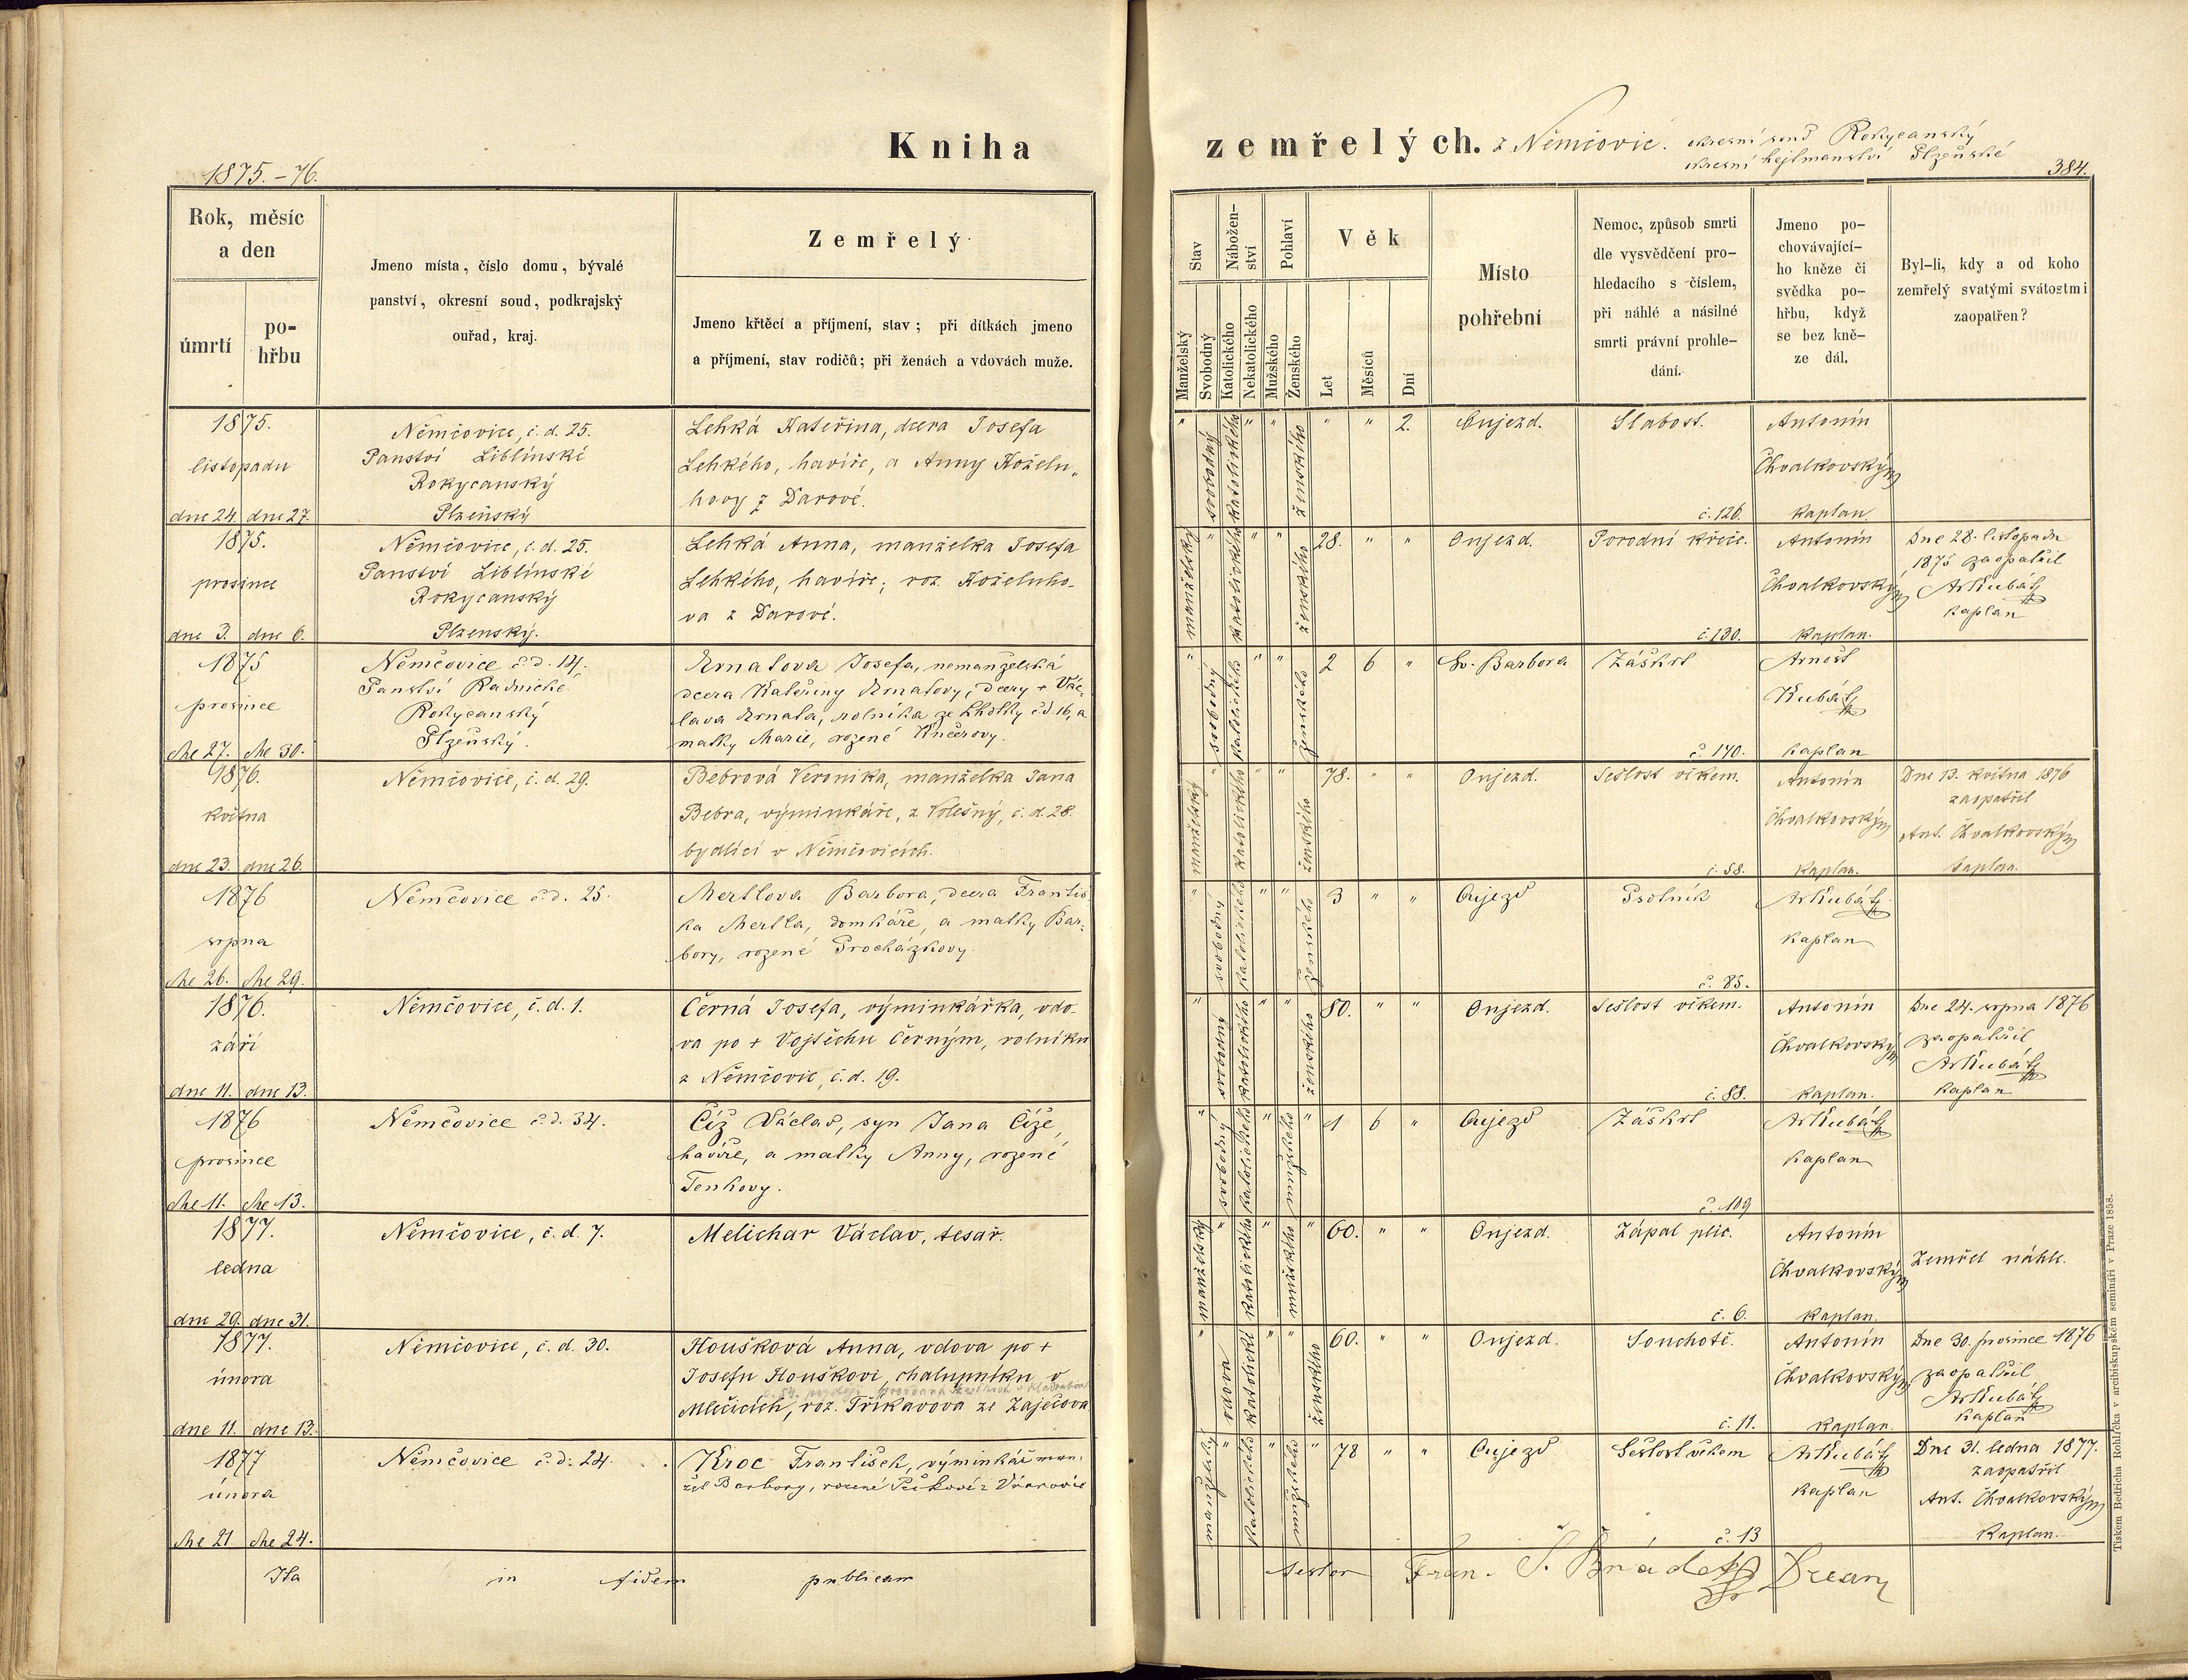 Kniha
zemřelých. z Němčovic. okresní soud Rokycanský
okresní hejtmanství Plzeňské
1875.-76.
384.
Rok, měsíc
a den
úmrtí
po-
hřbu
Jmeno místa, číslo domu, bývalé
panství, okresní soud, podkrajský
ouřad, kraj.
Zemřelý
Jmeno křtěcí a příjmení, stav; při dítkách jmeno
a příjmení, stav rodičů; při ženách a vdovách muže.
Stav
Manželský
Svobodný
Nábožen-
ství
Katolického
Nekatolického
Pohlaví
Mužského
Ženského
Věk
Let
Měsíců
Dní
Místo
pohřební
Nemoc, způsob smrti
dle vysvědčení pro-
hledacího s číslem,
při náhlé a násilné
smrti právní prohle-
dání.
Jmeno po-
chovávající-
ho kněze či
svědka po-
hřbu, když
se bez kně-
ze dál.
Byl-li, kdy a od koho
zemřelý svatými svátostmi
zaopatřen?
1875.
listopadu
dne 24. dne 27.
Němčovice, č. d. 25.
Panství Liblínské
Rokycanský
Plzeňský
Lehká Kateřina, dcera Josefa
Lehkého, havíře, a Anny Koželu„
hovy z Darové.
" svobodný katolického " " ženského " " 2.
Oujezd.
Slabost.
č. 126.
Antonín
Chvalkovský
kaplan
1875.
prosince
dne 3. dne 6.
Němčovice, č. d. 25.
Panství Liblínské
Rokycanský
Plzenský.
Lehká Anna, manželka Josefa
Lehkého, havíře; roz. Koželuho-
va z Darové.
manželský " katolického " " ženského 28. " "
Oujezd.
Porodní křeče.
č. 130.
Antonín
Chvalkovský
kaplan.
Dne 28. listopadu
1875 zaopatřil
Ar Kubát
kaplan
1875
prosince
dne 27. dne 30.
Němčovice č. d. 14.
Panství Radnické
Rokycanský
Plzeňský.
Josefa, nemanželská
dcera Kateřiny dcery + Vác-
lava rolníka ze Lhotky č. d. 16, a
matky Marie, rozené Kučerovy.
" svobodný katolického " " ženského 2 6 "
Sv. Barbora
Záškrt
č. 140.
Arnošt
Kubát
kaplan
1876.
května
dne 23. dne 26.
Němčovice, č. d. 29.
Bebrová Veronika, manželka Jana
Bebra, výminkáře, z Volešný, č. d. 28.
bydlící v Němčovicích.
manželský " katolického " " ženského 78. " "
Oujezd.
Sešlost věkem.
č. 58.
Antonín
Chvalkovský
kaplan.
Dne 13. května 1876
zaopatřil
Ant. Chvalkovský
kaplan.
1876
srpna
dne 26. dne 29.
Němčovice č. d. 25.
Mertlova Barbora, dcera Františ
ka Mertla, domkáře, a matky Bar-
bory, rozené Procházkovy.
" svobodný katolického " " ženského 3 " "
Oujezd
Psotník
č. 85.
Ar Kubát
kaplan
1876.
září
dne 11. dne 13.
Němčovice, č. d. 1.
Černá Josefa, výminkářka, vdo-
va po + Vojtěchu Černým, rolníku
z Němčovic, č. d. 19.
" svobodný katolického " " ženského 80. " "
Oujezd.
Sešlost věkem.
č. 88.
Antonín
Chvalkovský
kaplan.
Dne 24. srpna 1876
zaopatřil
Ar Kubát
kaplan
1876
prosince
dne 11. dne 13.
Němčovice č. d. 34.
Číž Václav, syn Jana Číže,
havíře, a matky Anny, rozené
Tenkovy.
" svobodný katolického " mužského " 1 6 "
Oujezd
Záškrt
č. 109
Ar Kubát
kaplan
1877.
ledna
dne 29. dne 31.
Němčovice, č. d. 7.
Melichar Václav, tesař.
manželský " katolického " mužského " 60. " "
Oujezd.
Zápal plic.
č. 6.
Antonín
Chvalkovský
kaplan.
Zemřel náhle.
1877.
února
dne 11. dne 13.
Němčovice, č. d. 30.
Houšková Anna, vdova po +
Josefu Houškovi, chalupníku v
Mlečicích, roz. Tříkavova ze Zaječova
" vdova katolické " " ženského 60. " "
Oujezd.
Souchotě.
č. 11.
Antonín
Chvalkovský
kaplan.
Dne 30. prosince 1876
zaopatřil
Ar Kubát
kaplan
1877
února
dne 21 dne 24.
Němčovice č. d. 24.
Kroc František, výminkář man-
žel Barbory, rozené
manželský " katolického " mužského " 78 " "
Oujezd
Sešlost věkem
č. 13
Ar Kubát
kaplan
Dne 31. ledna 1877.
zaopatřil
Ant. Chvalkovský
kaplan.
Ita in fidem publicam
testor Fran. Š. Děkan
Tiskem Bedřicha Rohlíčka v arcibiskupském semináři v Praze 1858.